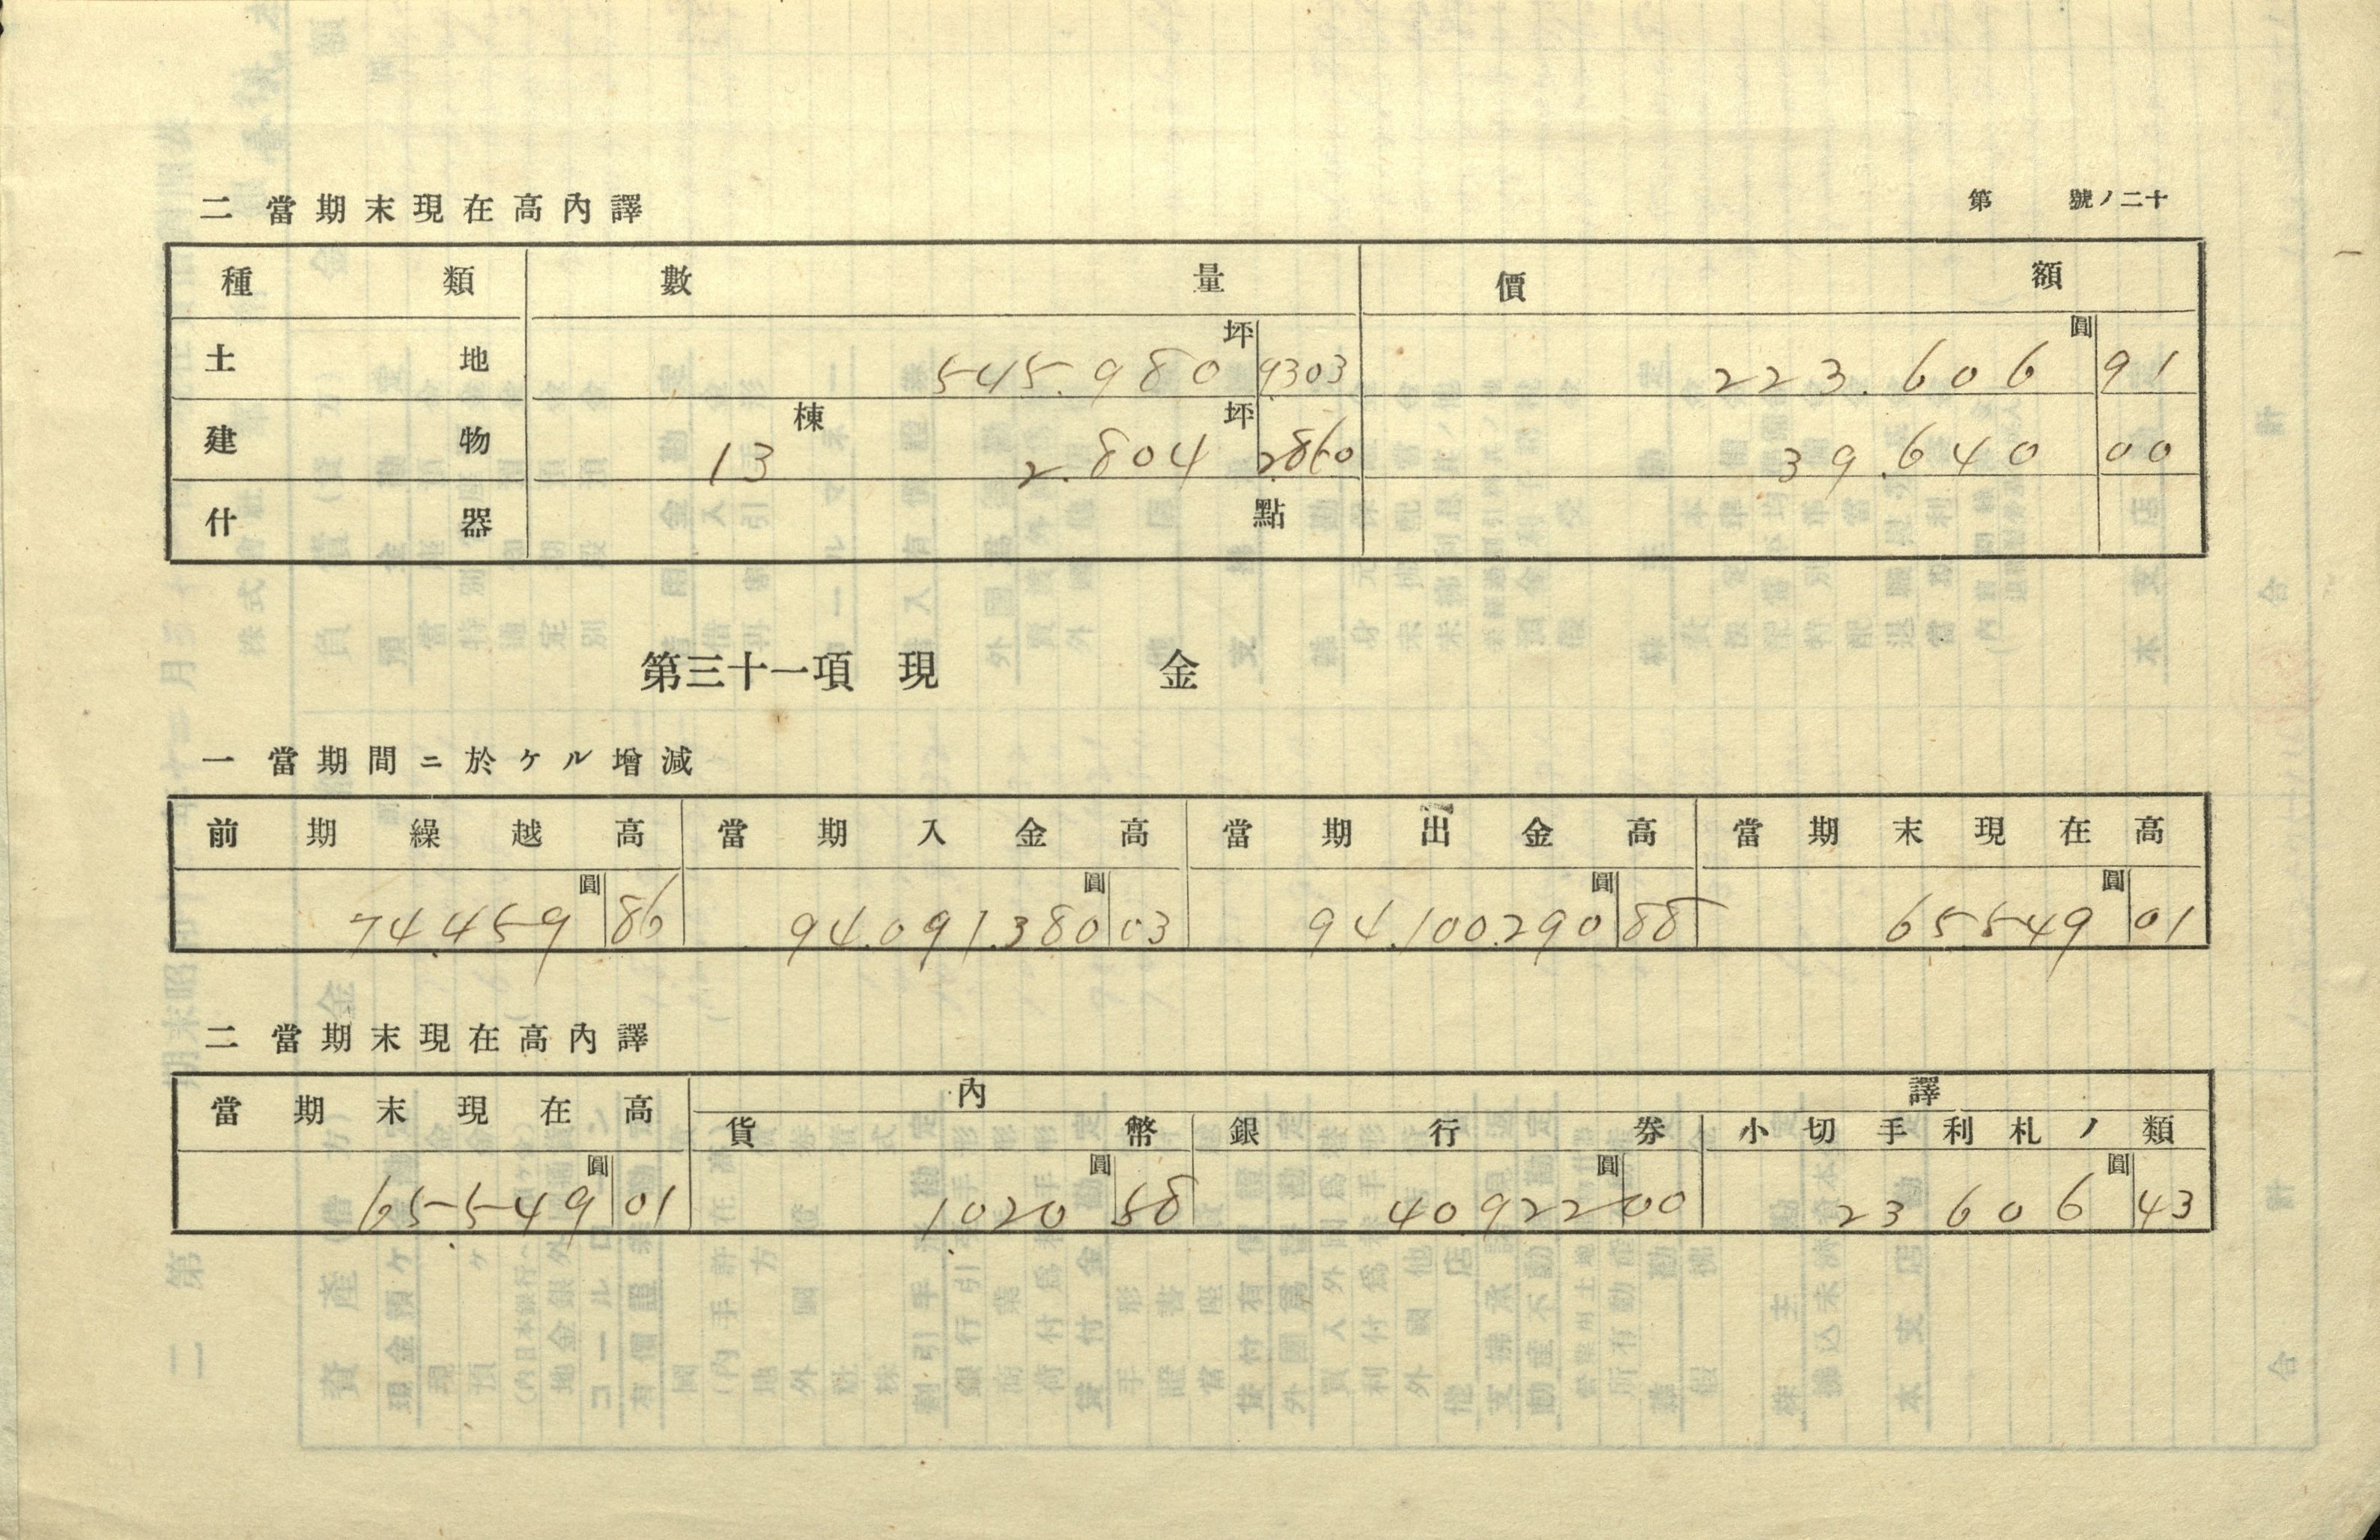 第 號ノ二十
二 當期末現在高內譯
種類 數量 價額
土地 545.980坪9303 223.606圓91
建物 13棟 2.804坪2860 39.640 00
什器 點
第三十一項 現金
一 當期間ニ於ケル增減
前期繰越高 當期入金高 當期出金高 當期末現在高
74.459圓86 94.091.380圓03 94.100.290圓88 65.549圓01
二 當期末現在高內譯
當期末現在高 內譯
貨幣 銀行券 小切手利札ノ類
65.549圓01 1.020圓58 40.922圓00 23606圓43